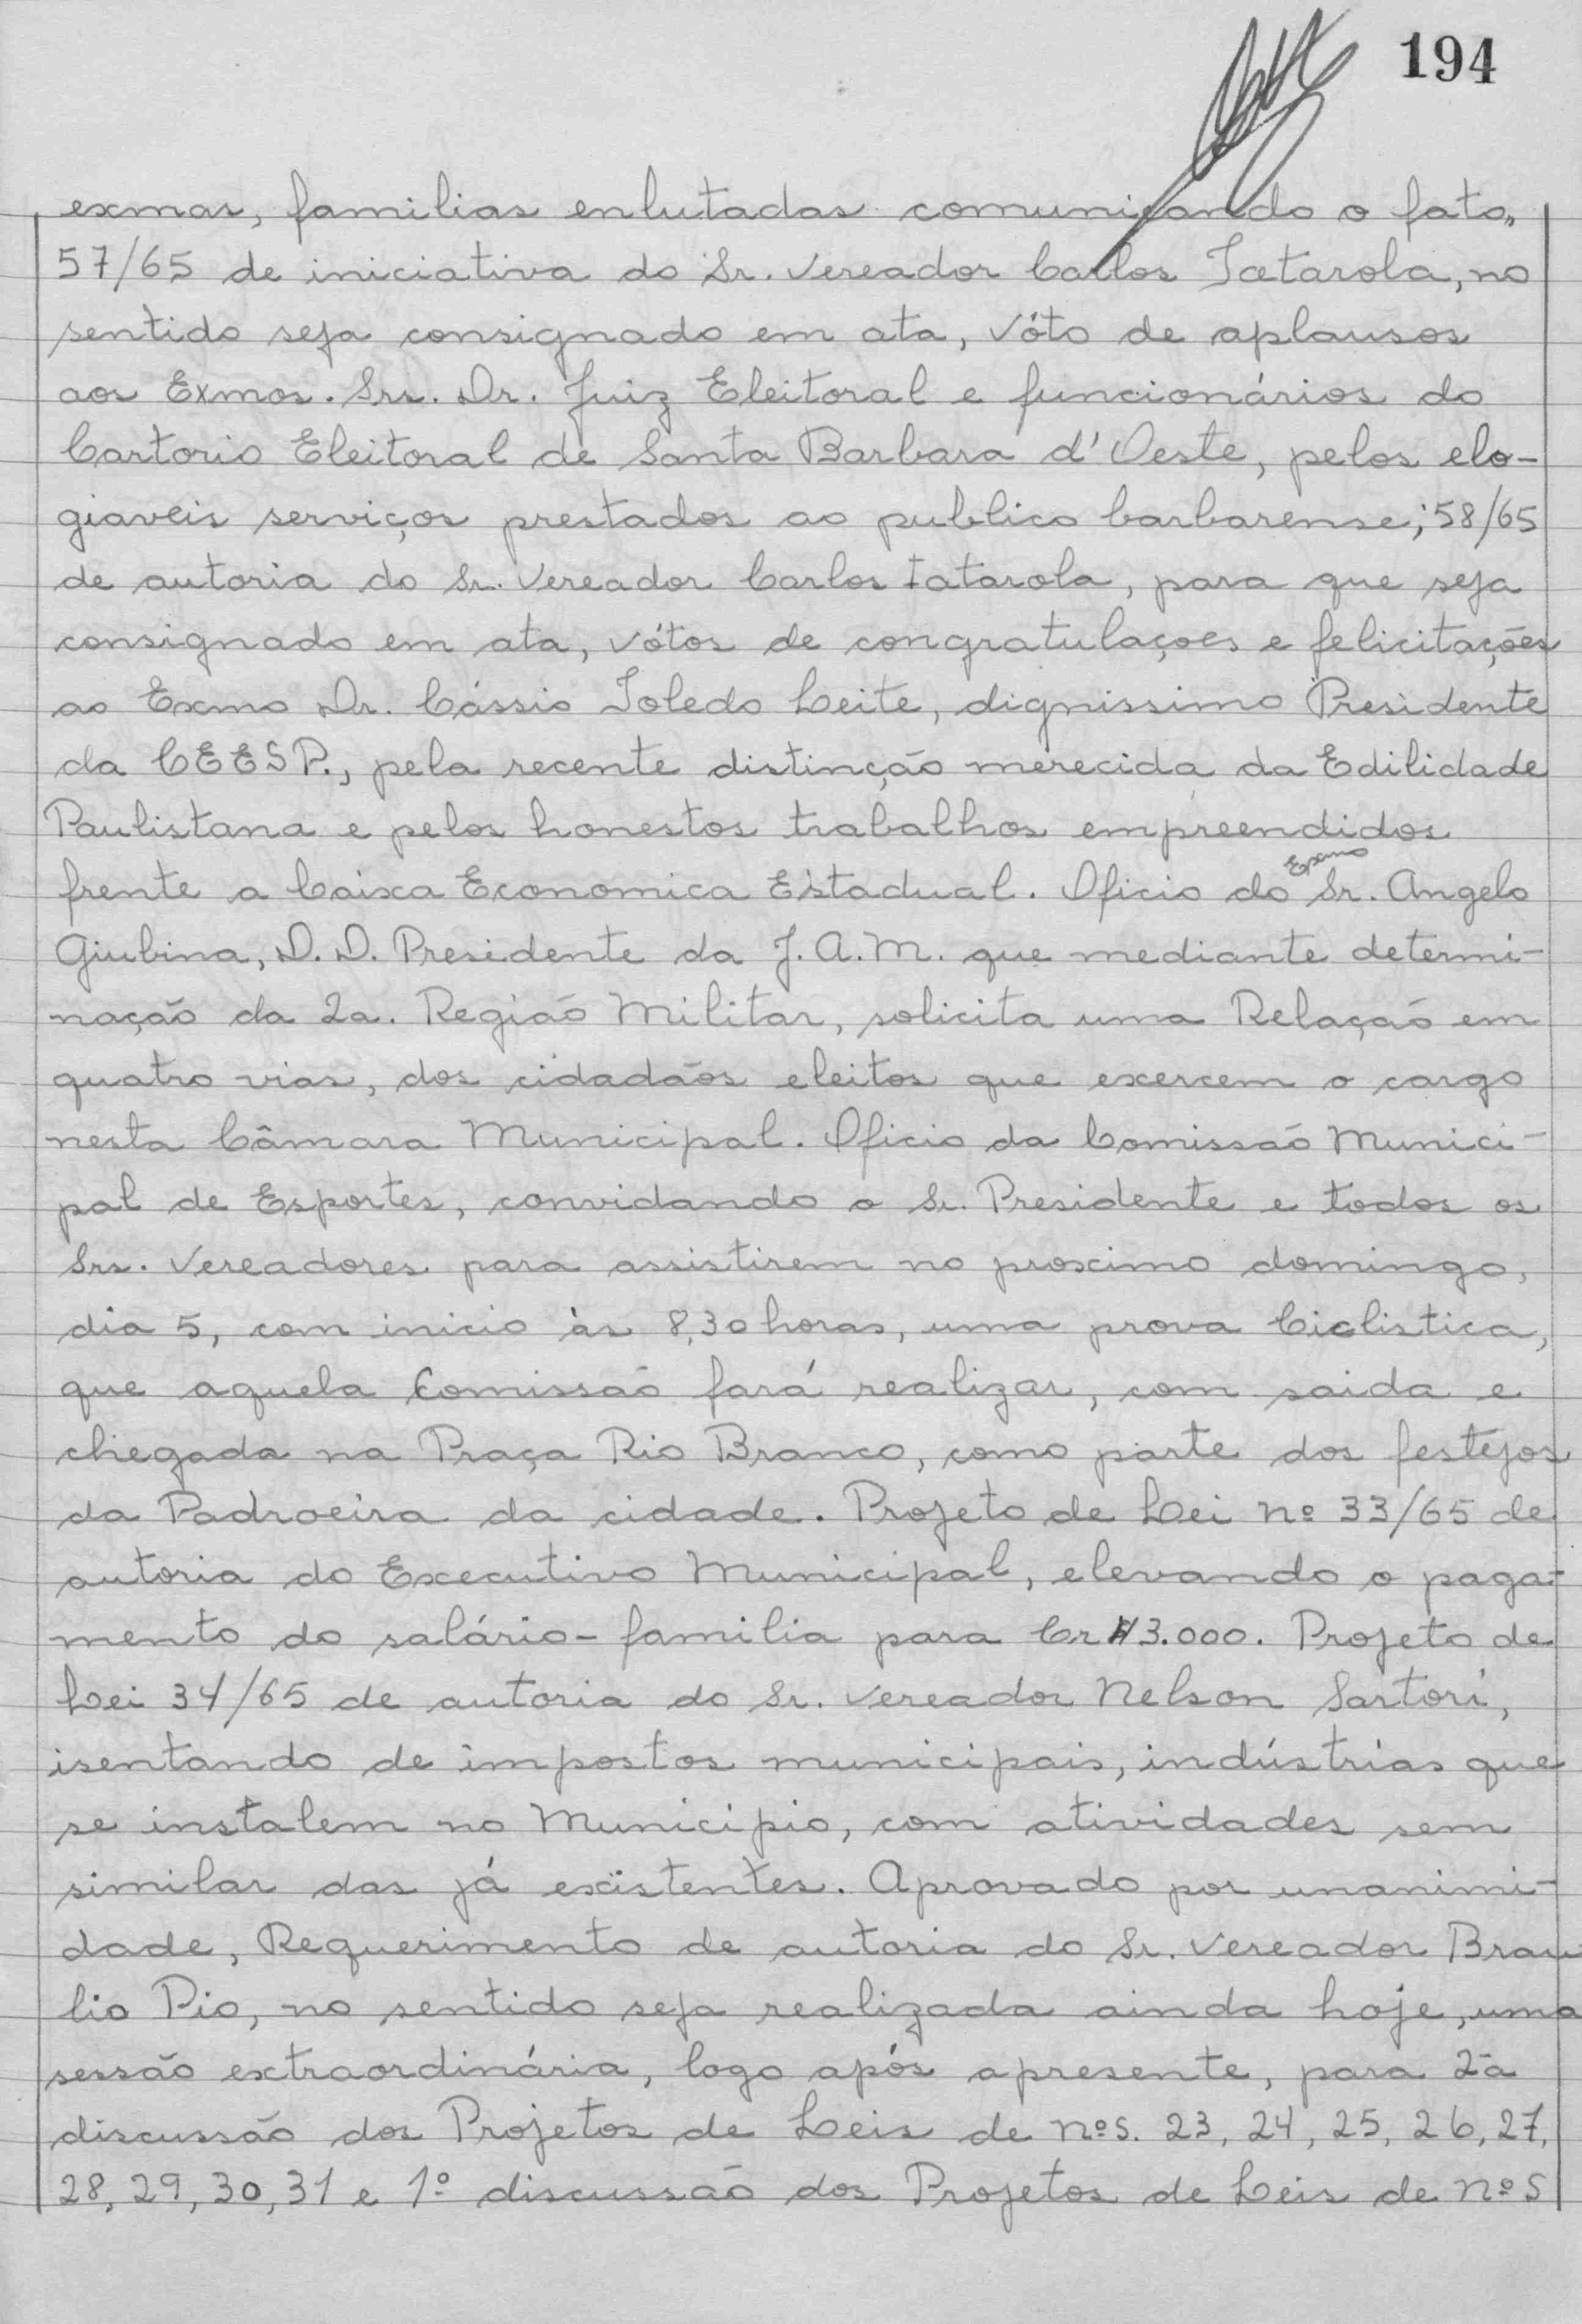 194
exmas, familias enlutadas comunicando o fato,,
57/65 de iniciativa do Sr. Vereador Carlos Tatarola, no
sentido seja consignado em ata, vóto de aplausos
aos Exmos. Srs. Dr. Juiz Eleitoral e funcionários do
Cartorio Eleitoral de Santa Barbara d'Oeste, pelos elo-
giaveis serviços prestados ao publico barbarense; 58/65
de autoria do Sr. Vereador Carlos tatarola, para que seja
consignado em ata, vótos de congratulaçoes e felicitações
ao Exmo Dr. Cássio Toledo Leite, dignissimo Presidente
da CEESP., pela recente distinção merecida da Edilidade
Paulistana e pelos honestos trabalhos empreendidos
frente a Caixa Economica Estadual. Oficio do Exmo Sr. Angelo
Giubina, D.D. Presidente da J.A.M. que mediante determi-
nação da 2a. Região Militar, solicita uma Relação em
quatro vias, dos cidadãos eleitos que exercem o cargo
nesta Câmara Municipal. Oficio da Comissão Munici-
pal de Esportes, convidando o Sr. Presidente e todos os
Srs. Vereadores para assistirem no proximo domingo,
dia 5, com inicio às 8,30 horas, uma prova Ciclistica,
que aquela Comissão fará realizar, com saida e
chegada na Praça Rio Branco, como parte dos festejos
da Padroeira da cidade. Projeto de Lei nº 33/65 de
autoria do Executivo Municipal, elevando o paga-
mento do salário-familia para Cr$ 3.000. Projeto de
Lei 34/65 de autoria do Sr. Vereador Nelson Sartori,
isentando de impostos municipais, indústrias que
se instalem no Municipio, com atividades sem
similar das já existentes. Aprovado por unanimi-
dade, Requerimento de autoria do Sr. Vereador Brau
lio Pio, no sentido seja realizada ainda hoje, uma
sessão extraordinária, logo após apresente, para 2ª
discussão dos Projetos de Leis de nºs. 23, 24, 25, 26, 27,
28, 29, 30, 31 e 1º discussão dos Projetos de Leis de nºs